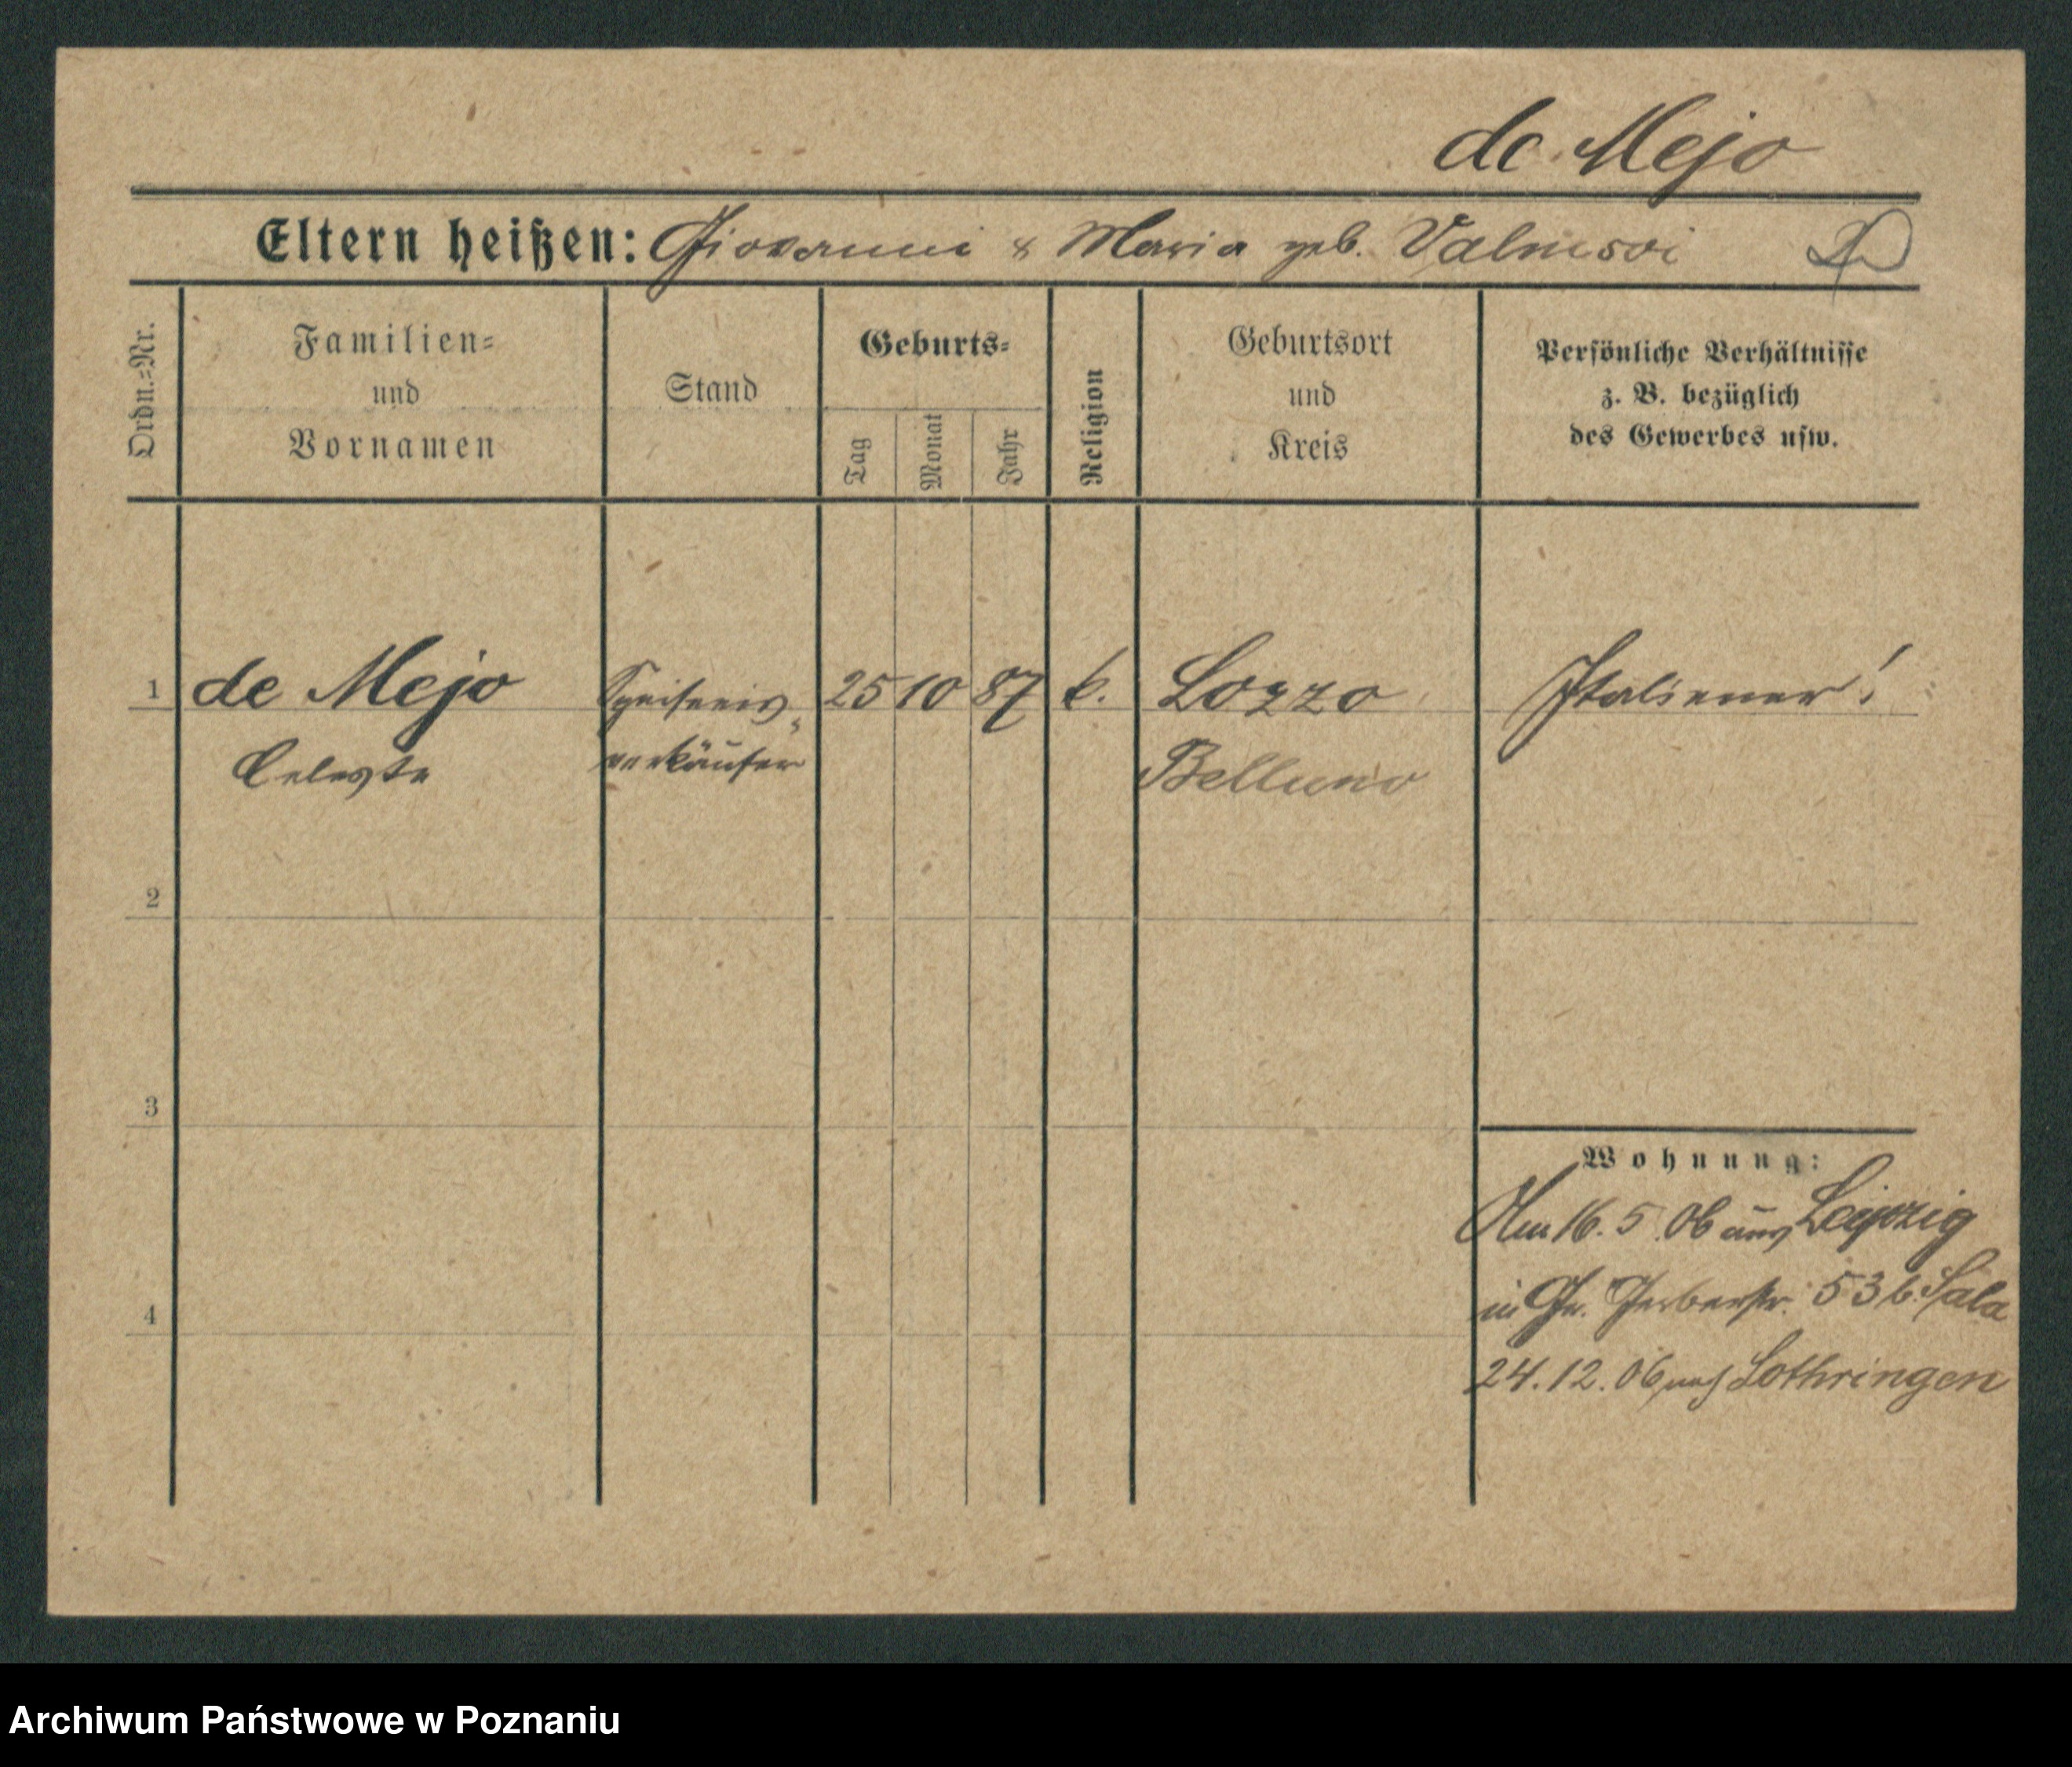 de Mejo
Eltern heißen: Giovanni & Maria geb. Valmsoi
Ordn.=Nr.
Familien=
und
Vornamen
Stand
Geburts=
Tag
Monat
Jahr
Religion
Geburtsort
und
Kreis
Persönliche Verhältnisse
z. B. bezüglich
des Gewerbes usw.
1 de Mejo Speiseeis 25 10 87 k. Lozzo Italiener!
Celeste verkäufer Belluno
2
3
Wohnung:
Am 16.5.06 aus Leipzig
in Gr. Gerberstr. 53 b. Sala
4
24.12.06 nach Lothringen
Archiwum Państwowe w Poznaniu